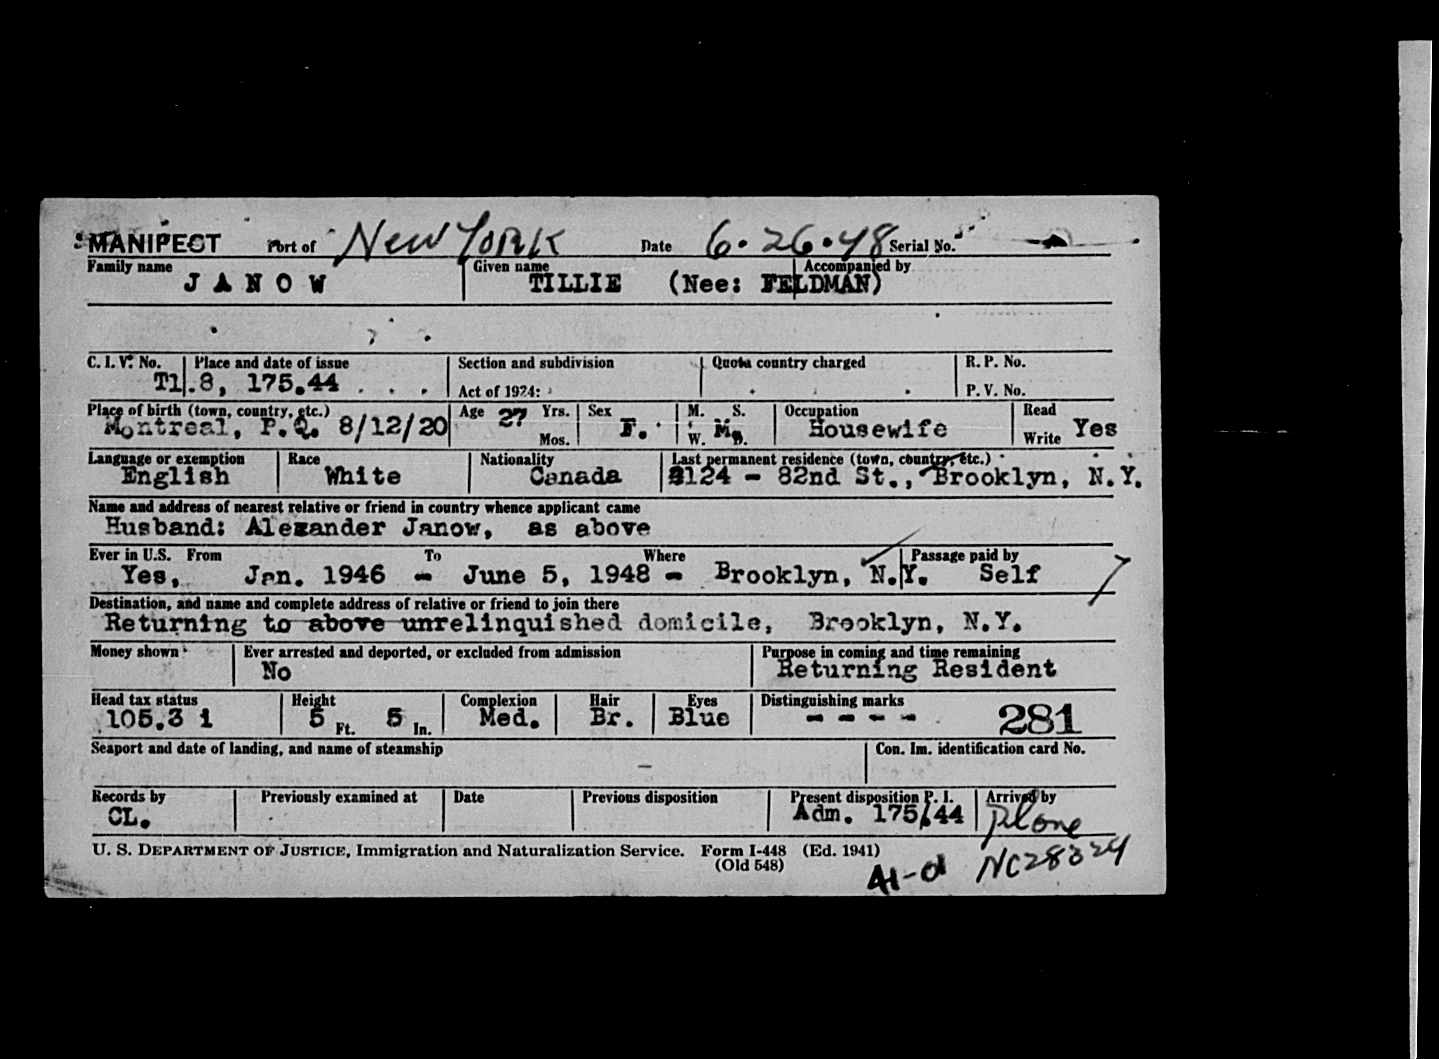 MANIFEST Port of New York Date 6-26-48 Serial No.
Family name Given name Accompanied by
JANOW TILLIE (Nee: FELDMAN)
C. I. V. No. Place and date of issue Section and subdivision Quota country charged R. P. No.
T1.8, 175.44 Act of 1924: P. V. No.
Place of birth (town, country, etc.) Age 27 Yrs. Sex M. S. Occupation Read
Montreal, P.Q. 8/12/20 Mos. F. W. M. D. Housewife Write Yes
Language or exemption Race Nationality Last permanent residence (town, country, etc.)
English White Canada 2124 - 82nd St., Brooklyn, N.Y.
Name and address of nearest relative or friend in country whence applicant came
Husband: Alexander Janow, as above
Ever in U.S. From To Where Passage paid by
Yes, Jan. 1946 - June 5, 1948 - Brooklyn, N.Y. Self
Destination, and name and complete address of relative or friend to join there
Returning to above unrelinquished domicile, Brooklyn, N.Y.
Money shown Ever arrested and deported, or excluded from admission Purpose in coming and time remaining
No Returning Resident
Head tax status Height Complexion Hair Eyes Distinguishing marks
105.3 i 5 Ft. 5 In. Med. Br. Blue - - - - 281
Seaport and date of landing, and name of steamship Con. Im. identification card No.
Records by Previously examined at Date Previous disposition Present disposition P. I. Arrived by
CL. Adm. 175.44 plane
U. S. DEPARTMENT OF JUSTICE, Immigration and Naturalization Service. Form I-448 (Ed. 1941)
(Old 548) NC28324